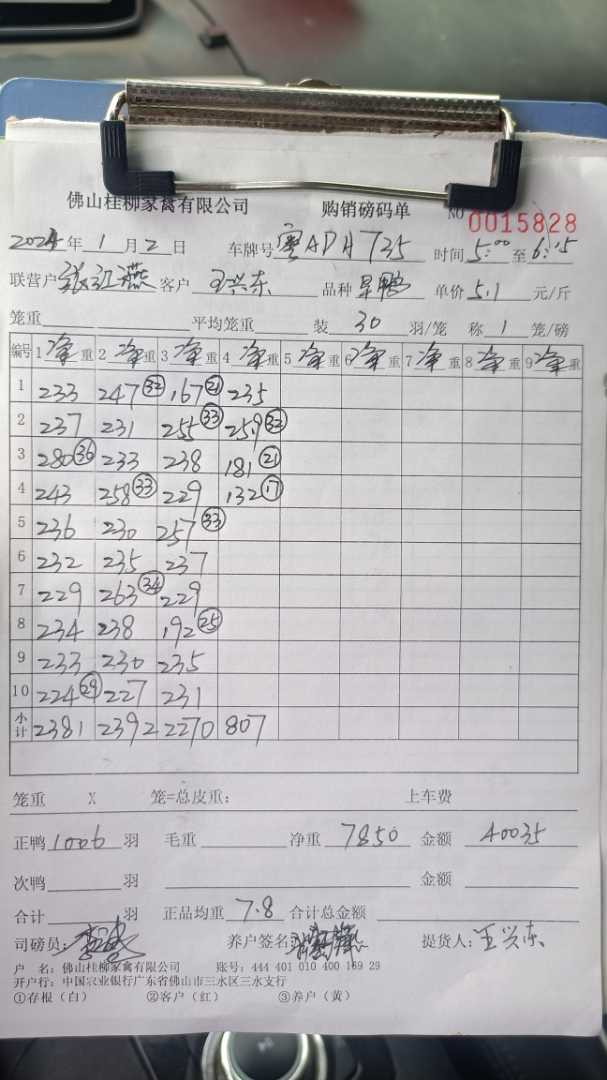 佛山桂柳家禽有限公司 购销磅码单 NO 0015828
2024年1月2日 车牌号 粤ADH735 时间5:00至6:15
联营户 张江燕 客户 王兴东 品种 旱鸭 单价5.1元/斤
笼重 平均笼重 装 30 羽/笼 称 1 笼/磅
编号 1净重 2净重 3净重 4净重 5净重 6净重 7净重 8净重 9净重
1 233 247㉜ 167㉑ 235
2 237 231 255㉝ 259㉝
3 280㊱ 233 238 181㉑
4 243 258㉝ 229 132⑰
5 236 230 257㉝
6 232 235 237
7 229 263㉞ 229
8 234 238 192㉕
9 233 230 235
10 224㉙ 227 231
小计 2381 2392 2270 807
笼重 X 笼=总皮重: 上车费
正鸭1006羽 毛重 净重 7850 金额 40035
次鸭 羽 金额
合计 羽 正品均重 7.8 合计总金额
司磅员: 养户签名 提货人: 王兴东
户 名: 佛山桂柳家禽有限公司 账号: 444 401 010 400 169 29
开户行: 中国农业银行广东省佛山市三水区三水支行
①存根（白） ②客户（红） ③养户（黄）